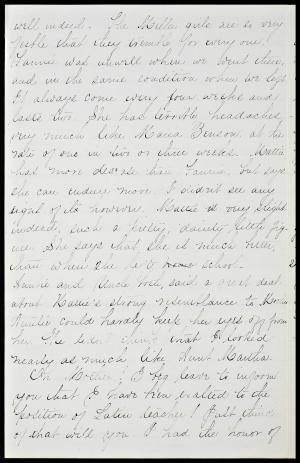 well indeed. The Mattie girls are so very
feeble that they tremble for every one.
Fannie was unwell when we went there,
and in the same condition when we left.
It always come every four weeks and
lasts two. She has terrible headaches,
very much like Maria Benson, at the
rate of one in two or three weeks. Mattie
has more disease than Fannie, but says
she can endure more. I didn't see any
sight of it however. Mattie is very slight
indeed, such a pretty, dainty little fig-
ure. She says that she is much better,
than when she left school.
Auntie and Uncle said a great deal
about Katie's strong resemblance to
Auntie could hardly keep her eyes off from
her. She didn't think that I looked
nearly as much like Aunt Martha.
Oh Mother! I beg leave to inform
you that I have been exalted to the
position of Latin teacher! Just think
of that will you. I had the honor of